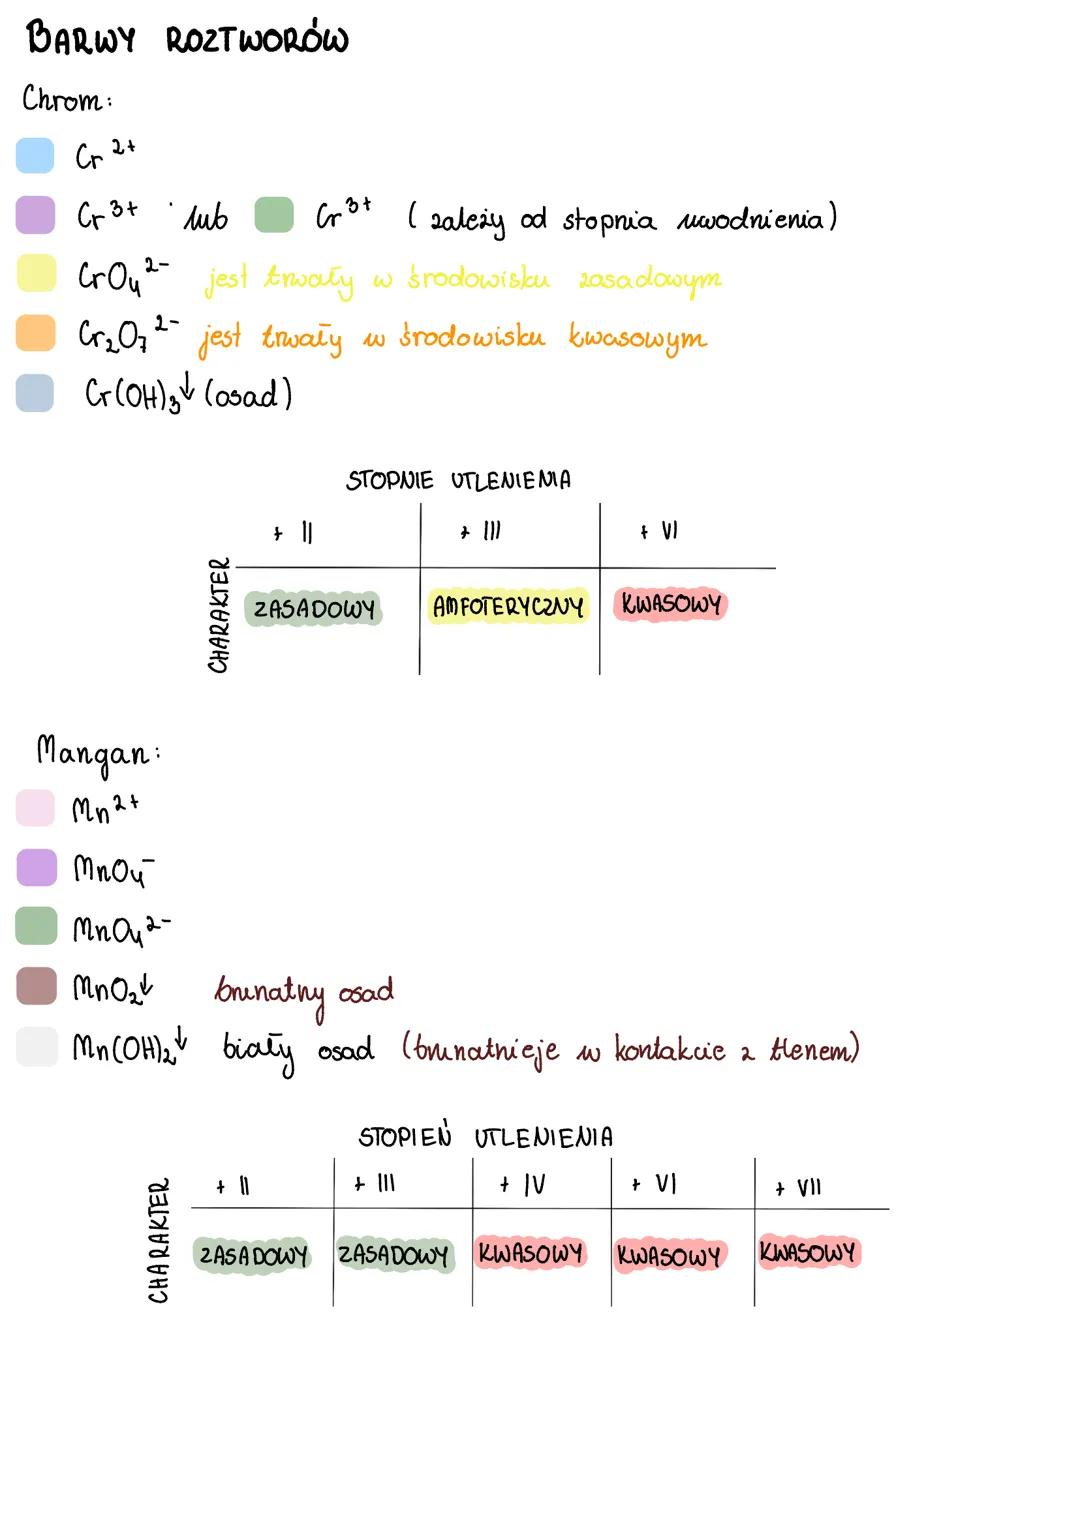 BARWY ROZTWORÓW
Chrom:
Cr²⁺
Cr³⁺ lub Cr³⁺ (zależy od stopnia uwodnienia)
CrO₄²⁻ jest trwały w środowisku zasadowym
Cr₂O₇²⁻ jest trwały w środowisku kwasowym
Cr(OH)₃↓ (osad)
STOPNIE UTLENIENIA
+ II + III + VI
CHARAKTER
ZASADOWY AMFOTERYCZNY KWASOWY
Mangan:
Mn²⁺
MnO₄⁻
MnO₄²⁻
MnO₂↓ brunatny osad
Mn(OH)₂↓ biały osad (brunatnieje w kontakcie z tlenem)
STOPIEŃ UTLENIENIA
+ II + III + IV + VI + VII
CHARAKTER
ZASADOWY ZASADOWY KWASOWY KWASOWY KWASOWY